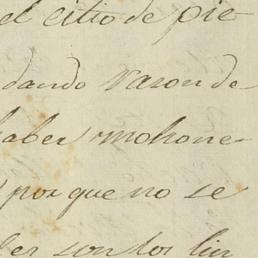 el citio de pie
dando rason de
haber mohone
porque no se
les son los lin